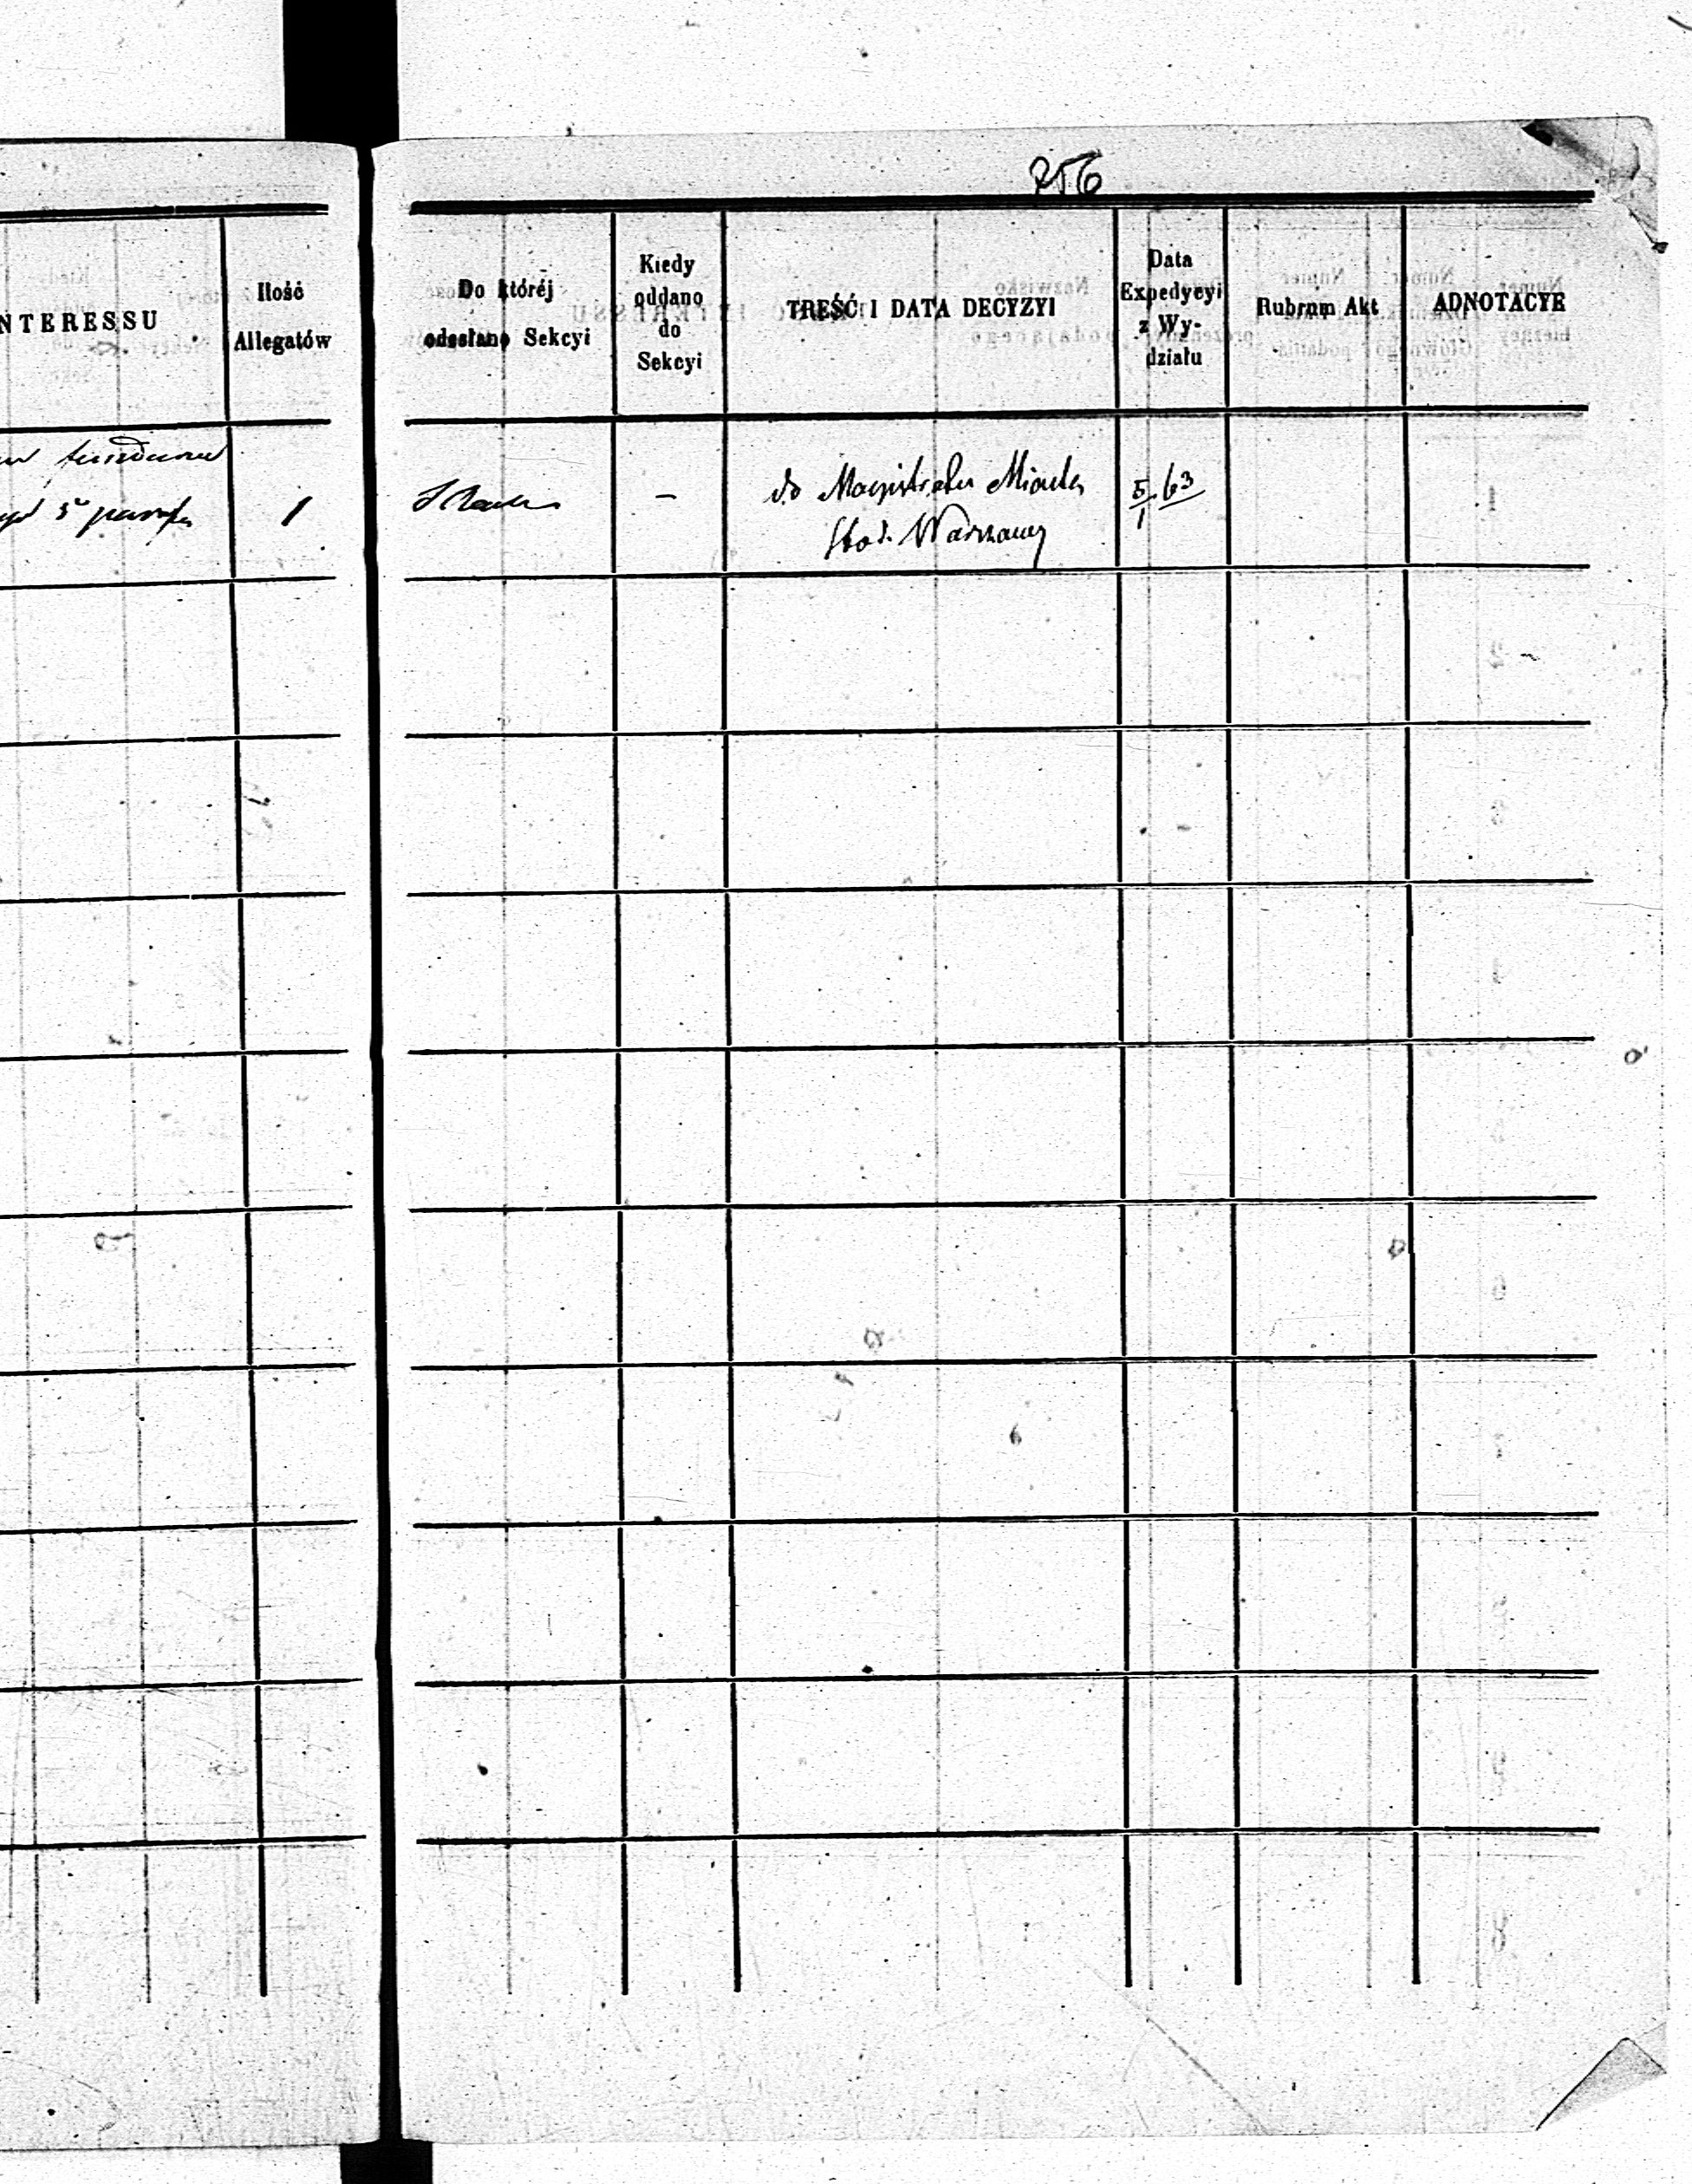 256
NTERESSU
Ilość
Allegatów
Do któréj
odesłano Sekcyi
Kiedy
oddano
do
Sekcyi
TREŚĆ I DATA DECYZYI
Data
Expedycyi
z Wy-
działu
Rubrum Akt
ADNOTACYE
1
–
do Magistratu Miasta
Stoł. Warszawy
5/1 63